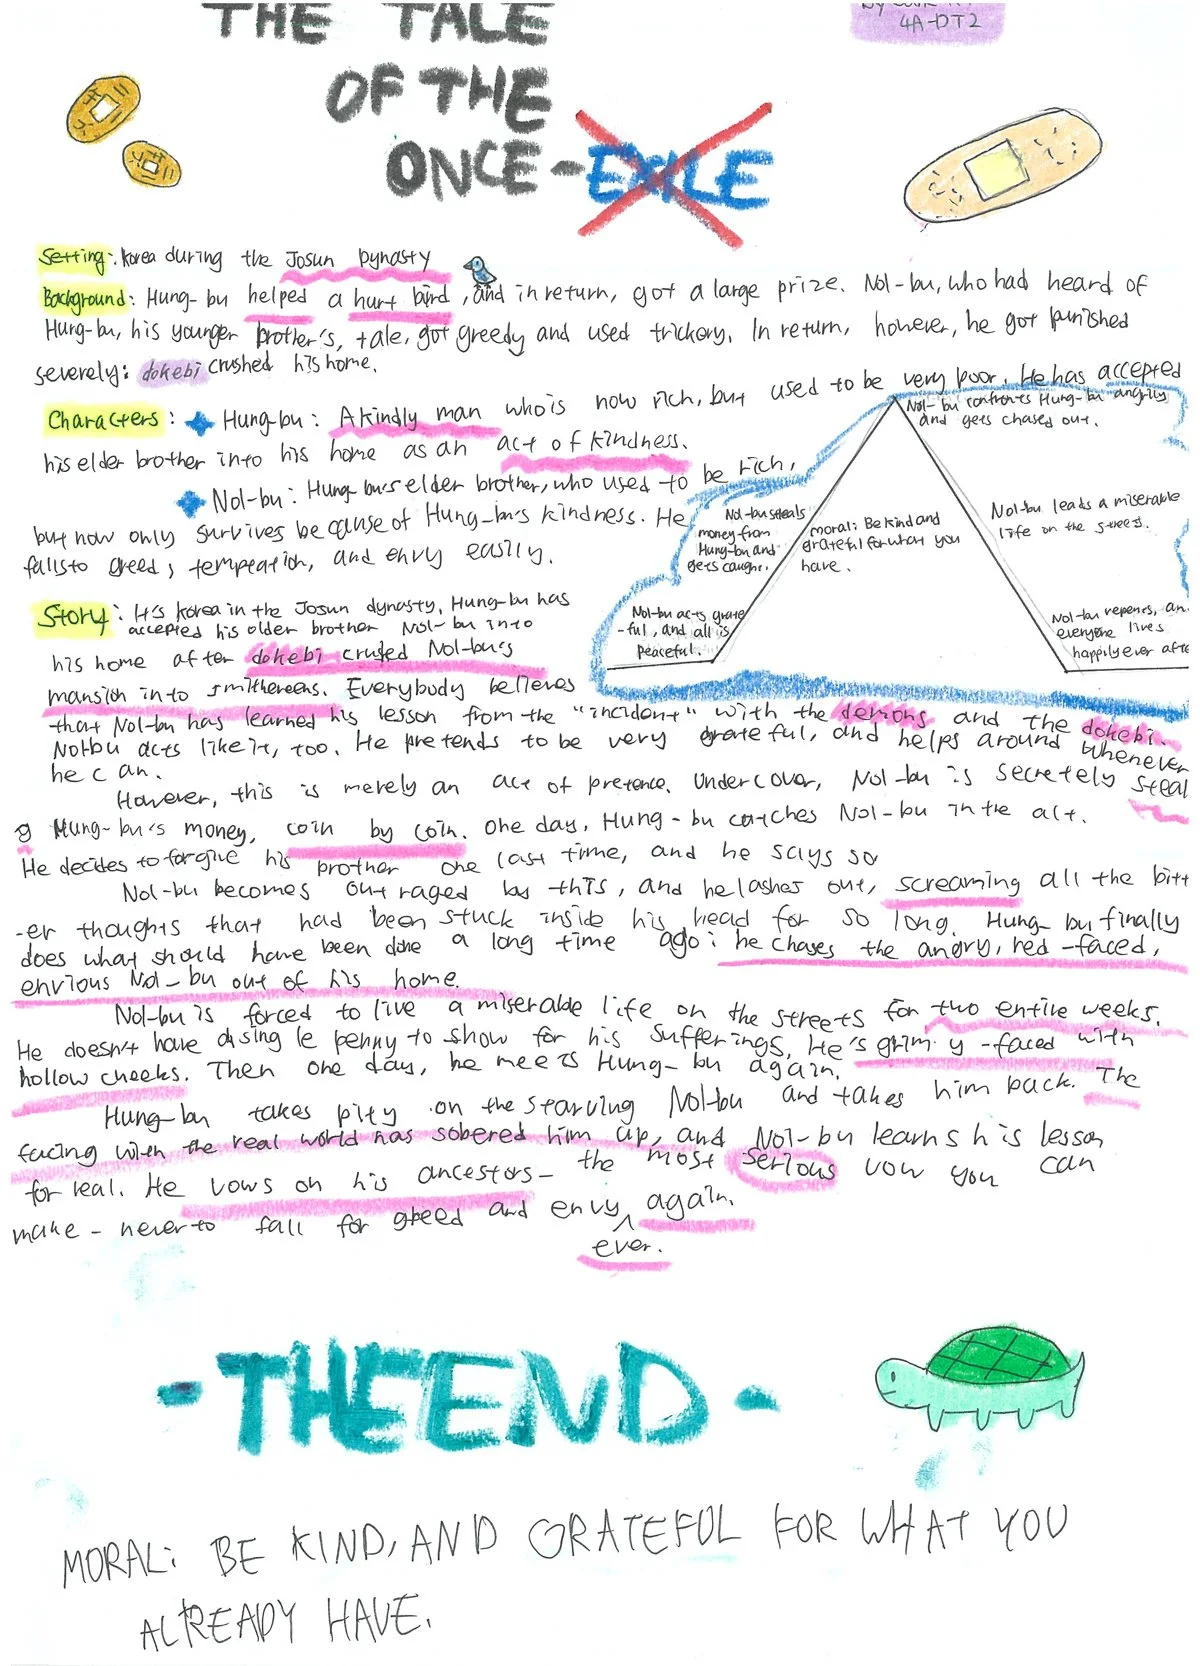 THE TALE
OF THE
ONCE-EXILE
4A-DT2
Setting: Korea during the Josun Dynasty
Background: Hung-bu helped a hurt bird, and in return, got a large prize. Nol-bu, who had heard of
Hung-bu, his younger brother's, tale, got greedy and used trickery. In return, however, he got punished
severely: dokebi crushed his home.
Characters: Hung-bu: A kindly man who is now rich, but used to be very poor. He has accepted
his elder brother into his home as an act of kindness.
Nol-bu: Hung-bu's elder brother, who used to be rich,
but now only survives because of Hung-bu's kindness. He
falls to greed, temptation, and envy easily.
Nol-bu acts grate
-ful, and all is
peaceful.
Nol-bu steals
money from
Hung-bu and
gets caught.
Nol-bu confronts Hung-bu angrily
and gets chased out.
moral: Be kind and
grateful for what you
have.
Nol-bu leads a miserable
life on the streets.
Nol-bu repents, an
everyone lives
happily ever afte
Story: It's Korea in the Josun dynasty. Hung-bu has
accepted his older brother Nol-bu into
his home after dokebi crused Nol-bu's
mansion into smithereens. Everybody believes
that Nol-bu has learned his lesson from the "incident" with the demons and the dokebi.
Nol-bu acts like it, too. He pretends to be very grateful, and helps around whenever
he can.
However, this is merely an act of pretence. Undercover, Nol-bu is secretely steal
g Hung-bu's money, coin by coin. One day, Hung-bu catches Nol-bu in the act.
He decides to forgive his brother one last time, and he says so
Nol-bu becomes outraged by this, and he lashes out, screaming all the bitt
-er thoughts that had been stuck inside his head for so long. Hung-bu finally
does what should have been done a long time ago: he chases the angry, red-faced,
envious Nol-bu out of his home.
Nol-bu is forced to live a miserable life on the streets for two entire weeks.
He doesn't have a single penny to show for his sufferings. He's grimy-faced with
hollow cheeks. Then one day, he meets Hung-bu again.
Hung-bu takes pity on the starving Nol-bu and takes him back. The
facing with the real world has sobered him up, and Nol-bu learns his lesson
for real. He vows on his ancestors- the most serious vow you can
make - never to fall for greed and envy ever again.
-THE END-
MORAL: BE KIND, AND GRATEFUL FOR WHAT YOU
ALREADY HAVE.